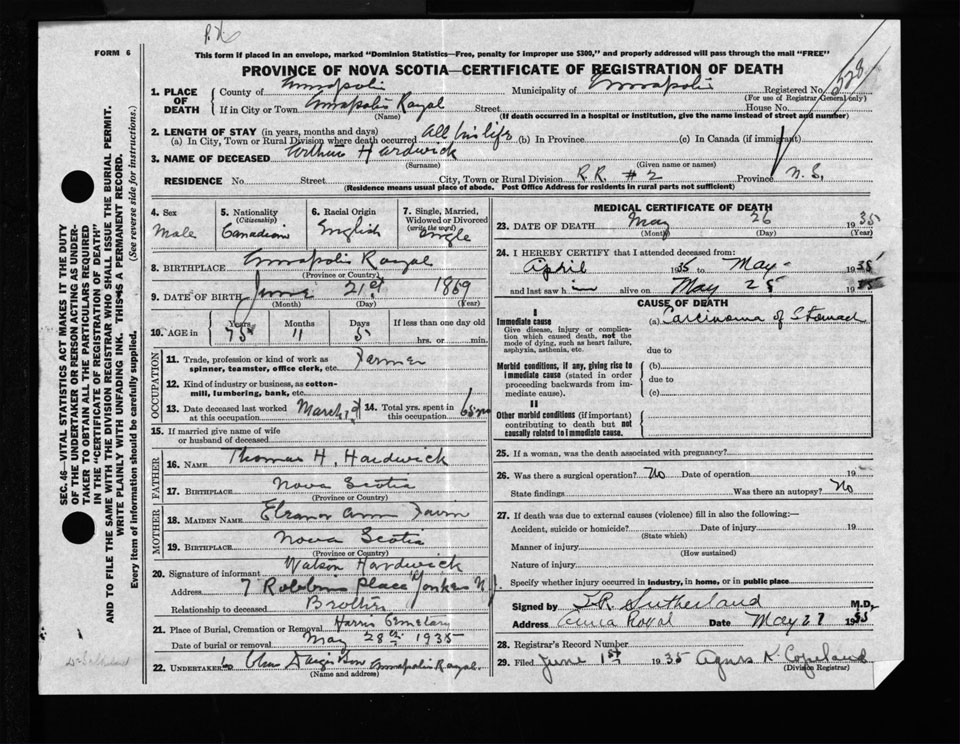 FORM 6
This form if placed in an envelope, marked "Dominion Statistics—Free, penalty for improper use $300," and properly addressed will pass through the mail "FREE"
PROVINCE OF NOVA SCOTIA—CERTIFICATE OF REGISTRATION OF DEATH
1. PLACE OF DEATH County of Annapolis Municipality of Annapolis Registered No. 528
(For use of Registrar General only)
If in City or Town Annapolis Royal Street House No.
(Name) (If death occurred in a hospital or institution, give the name instead of street and number)
2. LENGTH OF STAY (in years, months and days)
(a) In City, Town or Rural Division where death occurred All his life (b) In Province (c) In Canada (if immigrant)
3. NAME OF DECEASED Arthur Hardwick
(Surname) (Given name or names)
RESIDENCE No. Street City, Town or Rural Division R.R. # 2 Province N.S.
(Residence means usual place of abode. Post Office Address for residents in rural parts not sufficient)
4. Sex Male
5. Nationality (Citizenship) Canadian
6. Racial Origin English
7. Single, Married, Widowed or Divorced (write the word) Single
8. BIRTHPLACE Annapolis Royal
(Province or Country)
9. DATE OF BIRTH June 21st 1869
(Month) (Day) (Year)
10. AGE in Years Months Days If less than one day old
75 11 5 hrs. or min.
OCCUPATION
11. Trade, profession or kind of work as spinner, teamster, office clerk, etc. Farmer
12. Kind of industry or business, as cotton-mill, lumbering, bank, etc.
13. Date deceased last worked at this occupation March
14. Total yrs. spent in this occupation
15. If married give name of wife or husband of deceased
FATHER
16. NAME Thomas H. Hardwick
17. BIRTHPLACE Nova Scotia
(Province or Country)
MOTHER
18. MAIDEN NAME Eleanor Ann
19. BIRTHPLACE Nova Scotia
(Province or Country)
20. Signature of informant Watson Hardwick
Address 7 Robbins Place Yonkers N.J.
Relationship to deceased Brother
21. Place of Burial, Cremation or Removal Harris Cemetery
Date of burial or removal May 28th 1935
22. UNDERTAKER Annapolis Royal.
(Name and address)
MEDICAL CERTIFICATE OF DEATH
23. DATE OF DEATH May 26 1935
(Month) (Day) (Year)
24. I HEREBY CERTIFY that I attended deceased from:
April 1935 to May 1935
and last saw h im alive on May 25 1935
CAUSE OF DEATH
I
Immediate cause (a) Carcinoma of Stomach
Give disease, injury or complication which caused death, not the mode of dying, such as heart failure, asphyxia, asthenia, etc.
due to
Morbid conditions, if any, giving rise to immediate cause (stated in order proceeding backwards from immediate cause).
(b)
due to
(c)
II
Other morbid conditions (if important) contributing to death but not causally related to immediate cause.
25. If a woman, was the death associated with pregnancy?
26. Was there a surgical operation? No Date of operation 19
State findings Was there an autopsy? No
27. If death was due to external causes (violence) fill in also the following:—
Accident, suicide or homicide? Date of injury 19
(State which)
Manner of injury
(How sustained)
Nature of injury
Specify whether injury occurred in industry, in home, or in public place
Signed by L.R. Sutherland M.D.
Address Anna Royal Date May 27 1935
28. Registrar's Record Number
29. Filed June 1st 1935 Agnes K. Copeland
(Division Registrar)
SEC. 46—VITAL STATISTICS ACT MAKES IT THE DUTY
OF THE UNDERTAKER OR PERSON ACTING AS UNDER-
TAKER TO OBTAIN ALL THE PARTICULARS REQUIRED
IN THE "CERTIFICATE OF REGISTRATION OF DEATH"
AND TO FILE THE SAME WITH THE DIVISION REGISTRAR WHO SHALL ISSUE THE BURIAL PERMIT.
WRITE PLAINLY WITH UNFADING INK. THIS IS A PERMANENT RECORD.
Every item of information should be carefully supplied. (See reverse side for instructions.)